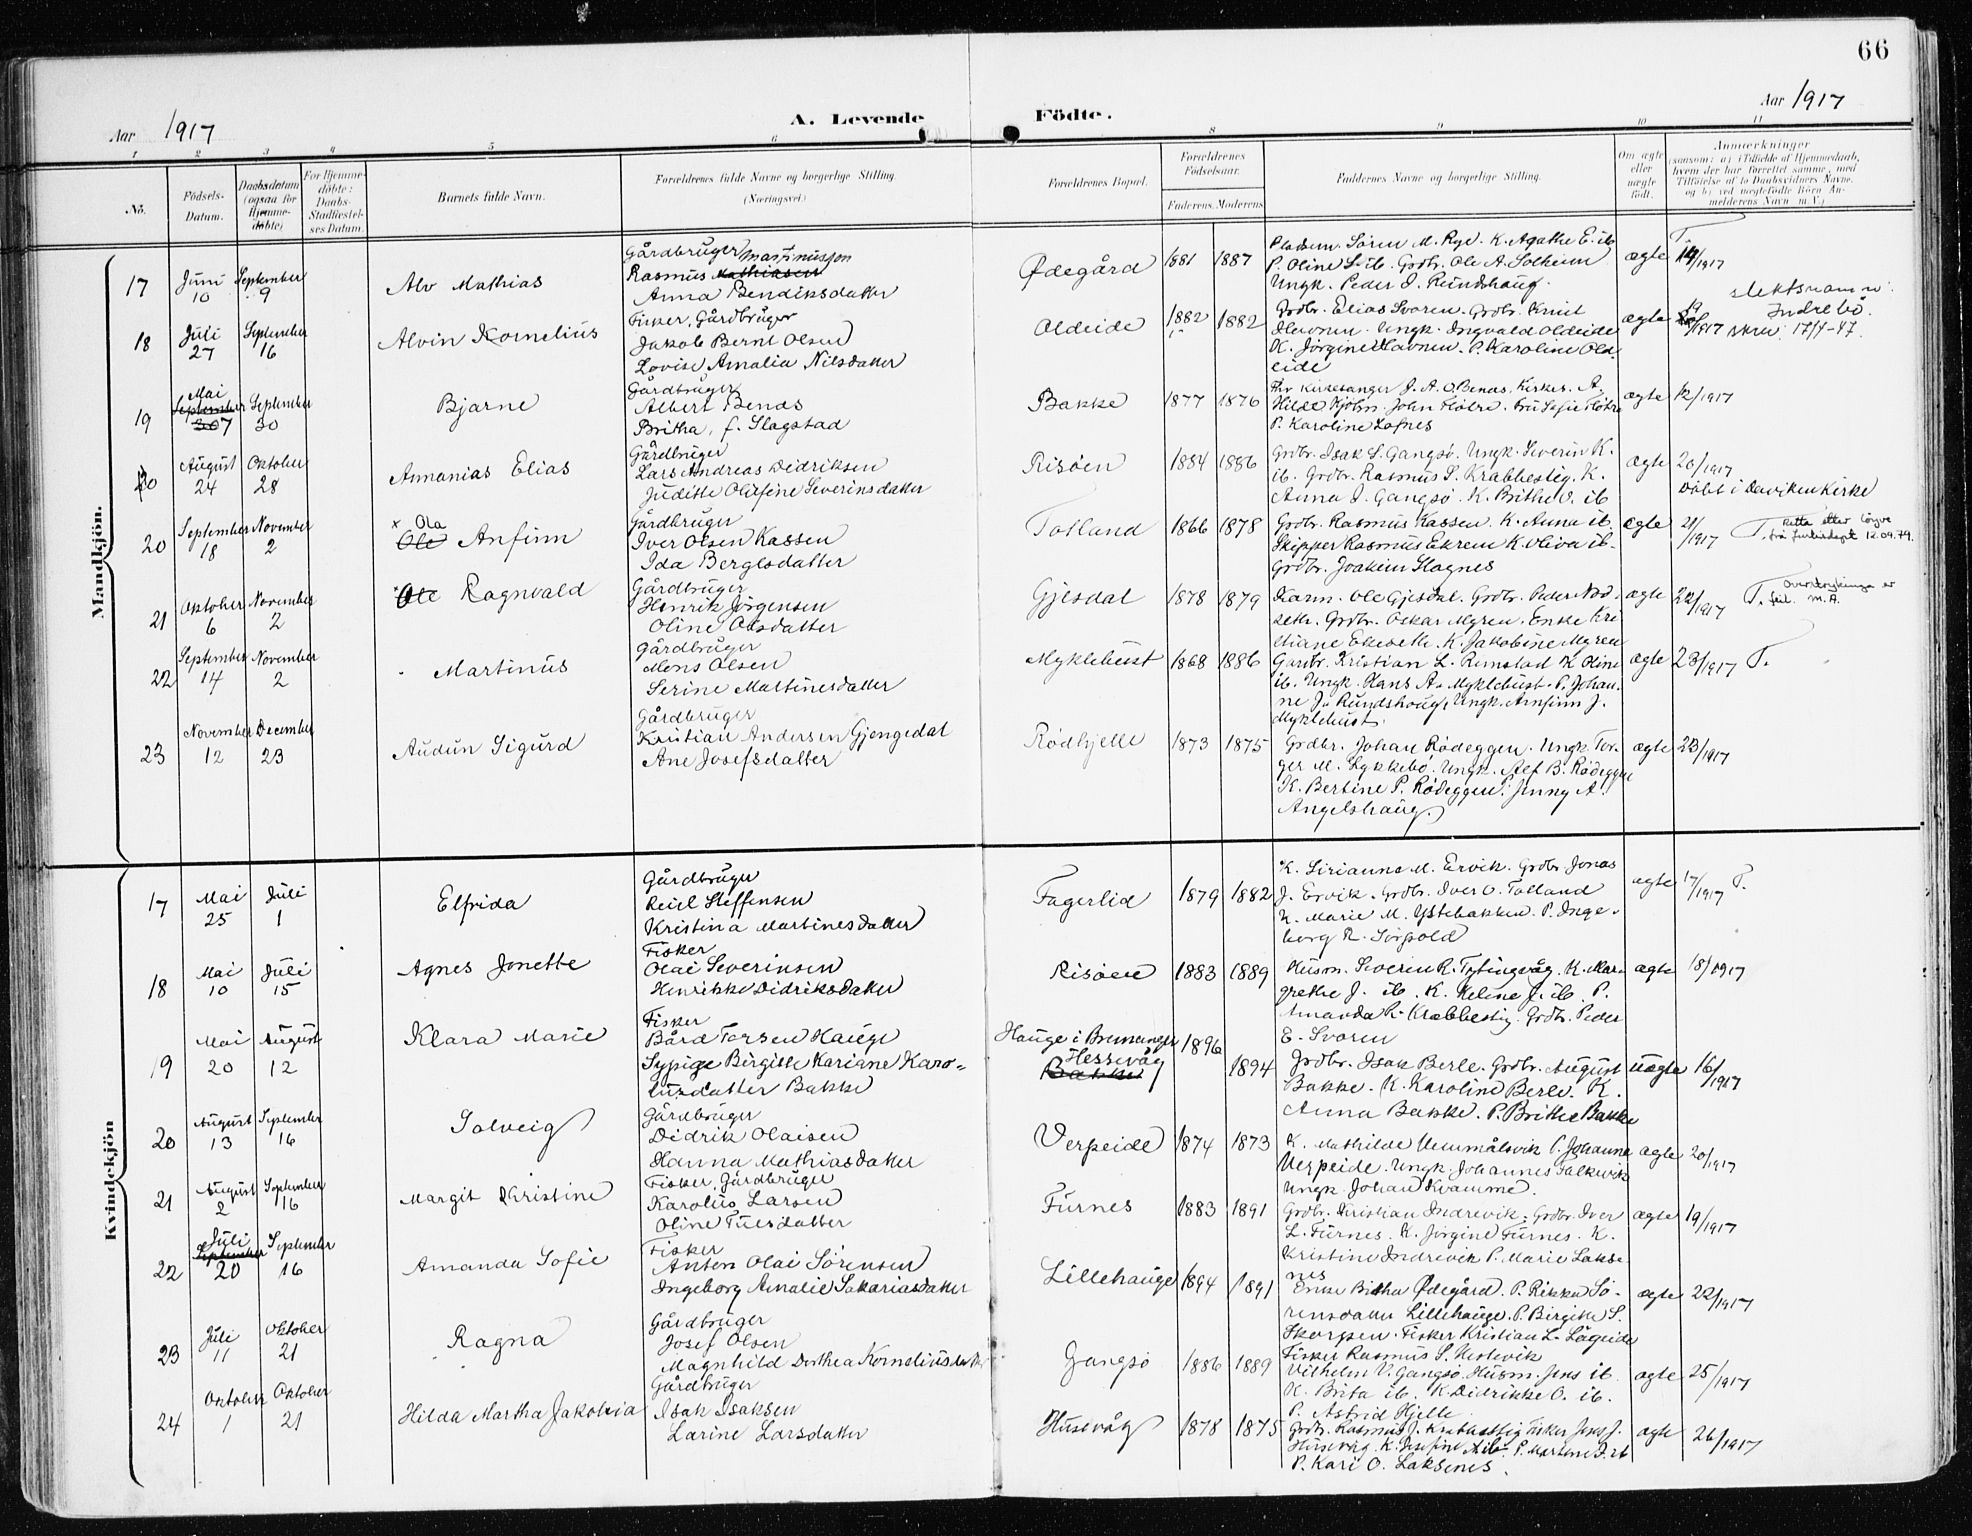 66
Aar 1917
A. Levende Födte.
Aar 1917
1 2 3 4 5 6 8 9 10 11
No.
Födsels-Datum.
Daabsdatum (ogsaa for Hjemme-döbte)
For Hjemme-döbte: Daabs-Stadfæstel-ses Datum.
Barnets fulde Navn.
Forældrenes fulde Navne og borgerlige Stilling.
(Næringsvei.)
Forældrenes Bopæl.
Forældrenes Födselsaar.
Faderens. Moderens.
Faddernes Navne og borgerlige Stilling.
Om ægte eller uægte födt.
Anmærkninger
(saasom: a) i Tilfælde af Hjemmedaab, hvem der har forrettet samme, med Tilföielse af to Daabsvidners Navne. og b) ved uægtefödte Börn Anmelderens Navn m. V.)
Mandkjön.
17 Juni 10 September 9
Alv Mathias
Gårdbruger Martinussen
Rasmus Mathiasen
Anna Bendiksdatter
Ødegård 1881 1887
Pladsm. Sören M. Ryd. K. Agathe E. ib
P. Oline S. ib. Grdbr. Ole A. Solheim
Ungk. Peder J. Reindshaug.
ægte 14/1917
18 Juli 27 September 16
Alvin Kornelius
Fisker, Gårdbruger
Jakob Bernt Olsen
Lovise Amalia Nilsdatter
Oldeide 1882 1882
Grdbr. Elias Svoren. Grdbr. Knut
Havnen. Ungk. Ingvald Oldeide
K. Jörgine Havnen. P. Karoline Old-
eide
ægte 19/1917
slektsnamn:
Indrebö.
skriv 17/4-47.
19 Mai September 30 7 September 30
Bjarne
Gårdbruger
Albert Benas
Britha, f. Slagstad
Bakke 1877 1876
Fhv Kirkesanger J. A. O. Benas. Kirkes. A.
Hilde Kjölm. John Flöhre. Fru Sofie Flöhre
P. Karoline Lofnes
ægte 12/1917
20 August 24 Oktober 28
Annanias Elias
Gårdbruger
Lars Andreas Didriksen
Juditte Olufine Severinsdatter
Risöen 1884 1886
Grdbr. Isak S. Gangsö. Ungk. Severin K.
ib. Grdbr. Rasmus P. Krabbestig. K.
Anna J. Gangsö. K. Brithe O. ib
ægte 20/1917
Döbt i Daviken Kirke
20 September 18 November 2
x Ola
Ole Anfinn
Gårdbruger
Iver Olsen Kassen
Ida Berglsdatter
Totland 1866 1878
Grdbr. Rasmus Kassen. K. Anna ib.
Skipper Rasmus Ekrem K. Oliva ib.
Grdbr. Joakim Hagnes
ægte 21/1917
T. Retta etter löyve
frå justisdept 12.09.79.
21 Oktober 6 November 2
Ole Ragnvald
Gårdbruger
Henrik Jörgensen
Oline Olsdatter
Gjesdal 1878 1879
Kaarm. Ole Gjesdal. Grdbr. Peder Nord-
seth. Grdbr. Oskar Myren. Enke Kri-
stiane Ekeseth. K. Jakobine Myren
ægte 22/1917
T. Overstrykinga er
feil. M.A.
22 September 14 November 2
Martinus
Gårdbruger
Mons Olsen
Serine Martinesdatter
Myklebust 1868 1886
Gardbr. Kristian L. Rimstad K Oline
ib. Ungk. Hans A. Myklebust. P. Johan-
ne J. Rundshaug, Ungk. Arnfinn J.
Myklebust.
ægte 23/1917 T.
23 November 12 December 23
Audun Sigurd
Gårdbruger
Kristian Andersen Gjengedal
Ane Josefsdatter
Rödhjelle 1873 1875
Grdbr. Johan Rödeggen. Ungk. Tor-
ger M. Lykkebö. Ungk. Alf B. Rödeggen
K. Bertine P. Rödeggen. Jenny A.
Angelshaug.
ægte 23/1917
Kvindekjön
17 Mai 25 Juli 1
Elfrida
Gårdbruger
Reiel Steffensen
Kristina Martinesdatter
Fagerlid 1879 1882
K. Sirianna M. Ervik. Grdbr Jonas
J. Ervik. Grdbr. Iver O. Totland
K. Marie M. Ystebakken. P. Inge-
borg R. Sörpold
ægte 17/1917 T.
18 Mai 10 Juli 15
Agnes Jonette
Fisker
Olai Severinsen
Henrikke Didriksdatter
Risöen 1883 1889
Husm. Severin R. Tytingvåg. K. Mar-
grethe J. ib. K. Heline J. ib. P.
Amanda R. Krabbestig. Grdbr. Peder
E. Svoren
ægte 18/1917
19 Mai 20 August 12
Klara Marie
Fisker
Bård Torsen Hauge
Sypige Birgitte Kariane Karo-
lusdatter Bakke
Hauge i Bremanger
Hessevåg
Bakke
1896 1894
Grdbr. Isak Berle. Grdbr. August
Bakke. K. Karoline Berle. K.
Anna Bakke. P. Brithe Bakke
uægte 16/1917
20 August 13 September 16
Solveig
Gårdbruger
Didrik Olaisen
Hanna Mathiasdatter
Verpeide 1874 1873
K. Mathilde Hemmålsvik P. Johanna
Verpeide. Ungk. Johannes Falkevik
Ungk. Johan Kvamme.
ægte 20/1917
21 August 2 September 16
Margit Kristine
Fisker, Gårdbruger
Karolus Larsen
Oline Tuesdatter
Furnes 1883 1891
Grdbr. Kristian Indrevik. Grdbr. Iver
L. Furnes. K. Jörgine Furnes. K.
Kristine Indrevik P. Marie Lakse-
nes
ægte 19/1917
22 Juli September 20 September 16
Amanda Sofie
Fisker
Anton Olai Sörensen
Ingeborg Amalie Sakariasdatter
Lillehauge 1894 1891
Enke Britha Ødegård. P. Rikka Sö-
rensdatter Lillehauge. P. Birgitte S.
Skorpen. Fisker Kristian L. Lågeide
Fisker Rasmus S. Hestevik
ægte 22/1917
23 Juli 11 Oktober 21
Ragna
Gårdbruger
Josef Olsen
Magnhild Dorthea Korneliusdatter
Gangsö 1886 1889
Vilhelm V. Gangsö. Husm. Jens ib
K. Brita ib. K. Didrikke O. ib.
P. Astrid Hjelle
ægte 25/1917
24 Oktober 1 Oktober 21
Hilda Martha Jakobia
Gårdbruger
Isak Isaksen
Larine Larsdatter
Husevåg 1878 1875
Grdbr. Rasmus J. Krabbestig Fisker Jens J.
Husevåg. K. Josefine A. ib. P. Martine I. ib
P. Kari O. Laksenes.
ægte 26/1917